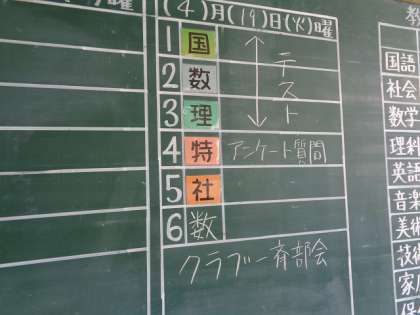 曜
(4)月(19)日(火)曜
1 国
2 数
3 理
テスト
4 特 アンケート質問
5 社
6 数
クラブ一斉部会
教
国語
社会
数学
理科
英語
音楽
美術
技術
家
保